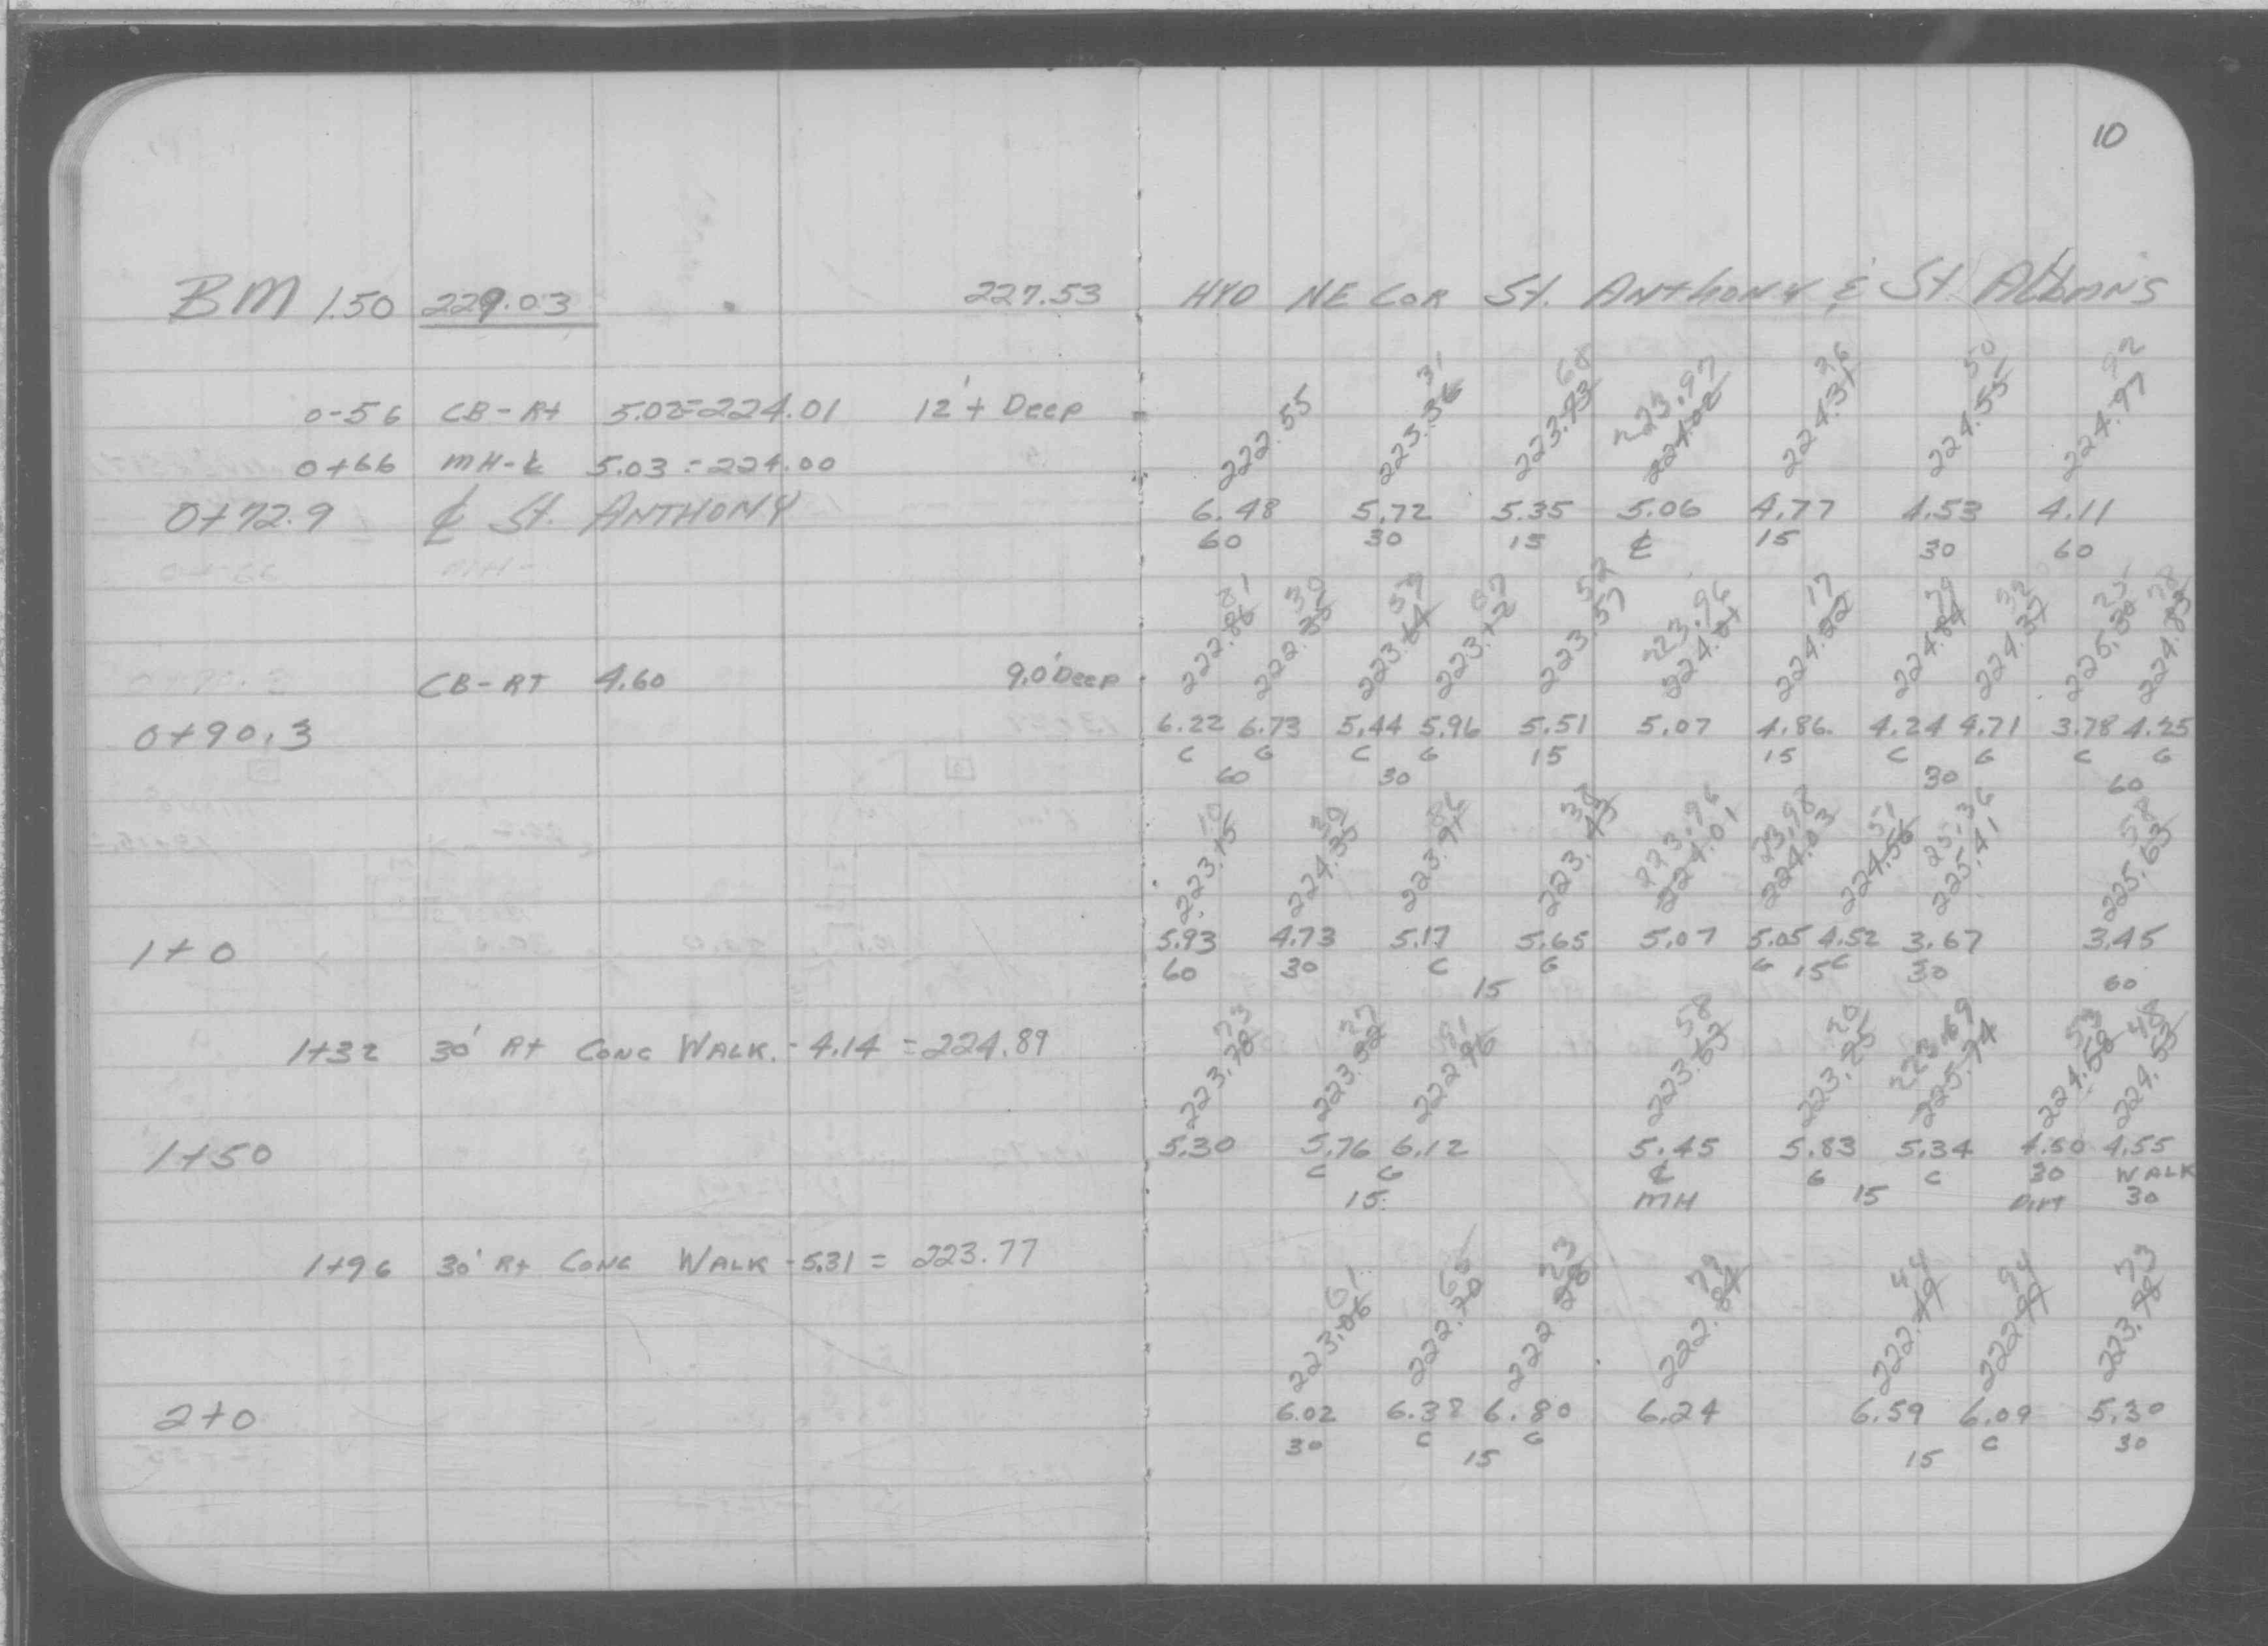 10
BM 1.50 229.03 227.53 HYD NE COR St. ANTHONY & St. ALBANS
31 68 223.97 36 50 92
0-56 CB-Rt 5.02=224.01 12'+ Deep 222.55 223.36 223.73 224.02 224.31 224.55 224.97
0+66 MH-℄ 5.03=224.00
0+72.9 ℄ St. ANTHONY 6.48 5.72 5.35 5.06 4.77 4.53 4.11
60 30 15 ℄ 15 30 60
81 30 59 07 52 223.96 17 79 32 25 78
222.86 222.35 223.64 223.12 223.57 224.01 224.22 224.84 224.37 225.30 224.83
CB-RT 4.60 9.0' Deep
0+90.3 6.22 6.73 5.44 5.96 5.51 5.07 4.86 4.24 4.71 3.78 4.25
C G C G 15 15 C G C G
60 30 30 60
10 30 86 38 223.96 23.98 51 25.36 58
223.15 224.35 223.91 223.43 224.01 224.03 224.56 225.41 225.63
1+0 5.93 4.73 5.17 5.65 5.07 5.05 4.52 3.67 3.45
60 30 C G G 15 C 30 60
15
73 27 91 58 20 223.69 53 48
1+32 30' Rt CONC WALK. - 4.14 = 224.89 223.78 223.32 222.96 223.63 223.25 225.74 224.58 224.53
1+50 5.30 5.76 6.12 5.45 5.83 5.34 4.50 4.55
C G ℄ G C 30 WALK
15 MH 15 Dirt 30
1+96 30' Rt CONC WALK - 5.31 = 223.77
61 65 23 79 44 94 73
223.06 222.70 222.28 222.84 222.49 222.99 223.78
2+0 6.02 6.38 6.80 6.24 6.59 6.09 5.30
30 C G C 30
15 15